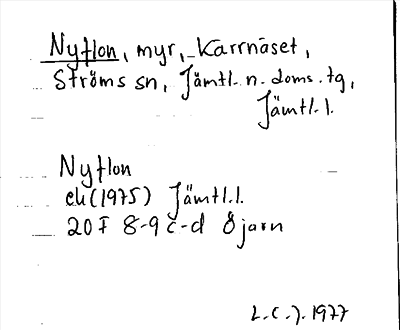 Nyflon, myr, Karrnäset,
Ströms sn, Jämtl. n. doms. tg,
Jämtl. l.
Nyflon
ek (1975) Jämtl. l.
20 F 8-9 c-d Öjarn
L.C.J. 1977